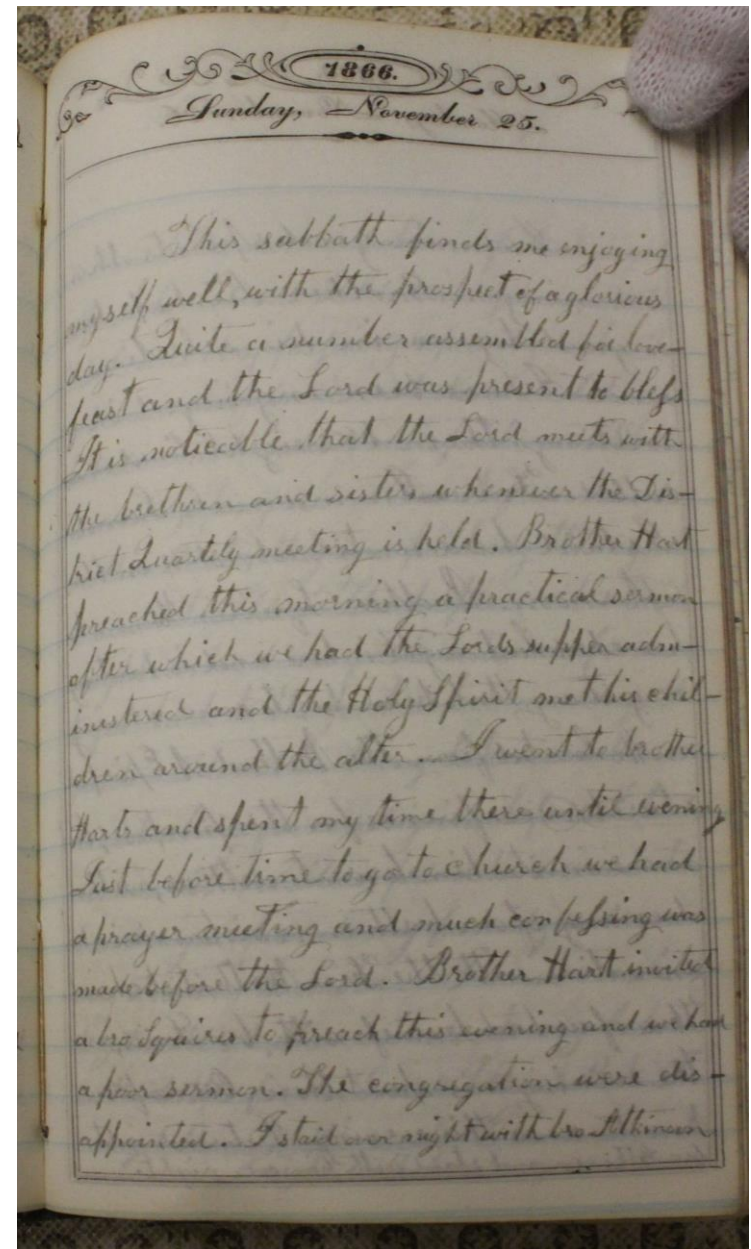 1866.
Sunday, November 25.
This sabbath finds me enjoying
myself well, with the prospect of a glorious
day. Quite a number assembled for love-
feast and the Lord was present to bless
It is noticable that the Lord meets with
the brethren and sisters whenever the Dis-
trict Quartely meeting is held. Brother Hart
preached this morning a practical sermon
after which we had the Lords supper adm-
inistered and the Holy Spirit met his chil-
dren around the alter. I went to brother
Harts and spent my time there until evening
Just before time to go to church we had
a prayer meeting and much confessing was
made before the Lord. Brother Hart invited
a bro Squires to preach this evening and we had
a poor sermon. The congregation were dis-
appointed. I staid over night with bro Atkinson